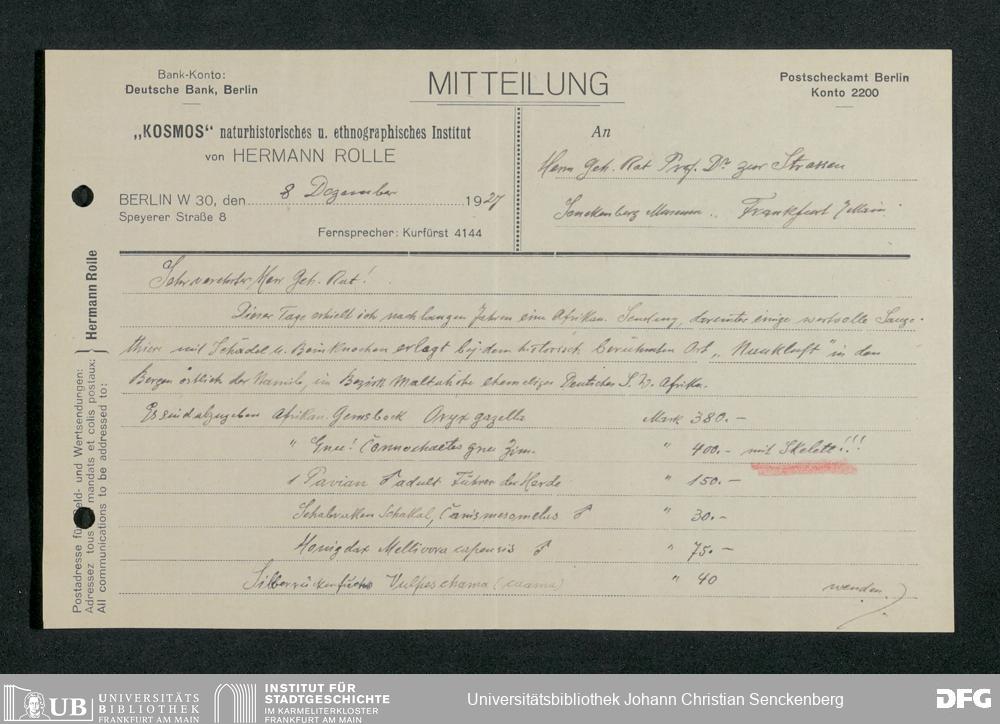 Bank-Konto:
Deutsche Bank, Berlin
MITTEILUNG
Postscheckamt Berlin
Konto 2200
„KOSMOS“ naturhistorisches u. ethnographisches Institut
von HERMANN ROLLE
BERLIN W 30, den 8 Dezember 1927
Speyerer Straße 8
Fernsprecher: Kurfürst 4144
An
Herrn Geh. Rat Prof. Dr zur Strassen
Senckenberg Museum .. Frankfurt /Main
Postadresse für Geld- und Wertsendungen:
Adressez tous mandats et colis postaux:
All communications to be addressed to:
Hermann Rolle
Sehr verehrter Herr Geh. Rat!
Dieser Tage erhielt ich nach langen Jahren eine Afrikan. Sendung, darunter einige wertvolle Säuge-
thiere mit Schädel u. Beinknochen erlegt bei dem historisch berühmten Ort „Naukluft“ in den
Bergen östlich der Namib, im Bezirk Maltahöhe ehemaliges Deutsches S. W. Afrika.
Es sind abzugeben Afrikan. Gemsbock Oryx gazella Mark 380.–
" Gnu! Connochaetes gnu Zim. " 400.– mit Skelett!!!
1 Pavian ♂ adult Führer der Herde " 150.–
Schabraken Schakal, Canis mesomelas ♂ " 30.–
Honigdax Mellivora capensis ♂ " 75.–
Silberrückenfuchs Vulpes chama (caama) " 40
wenden.
UB UNIVERSITÄTS
BIBLIOTHEK
FRANKFURT AM MAIN
INSTITUT FÜR
STADTGESCHICHTE
IM KARMELITERKLOSTER
FRANKFURT AM MAIN
Universitätsbibliothek Johann Christian Senckenberg
DFG